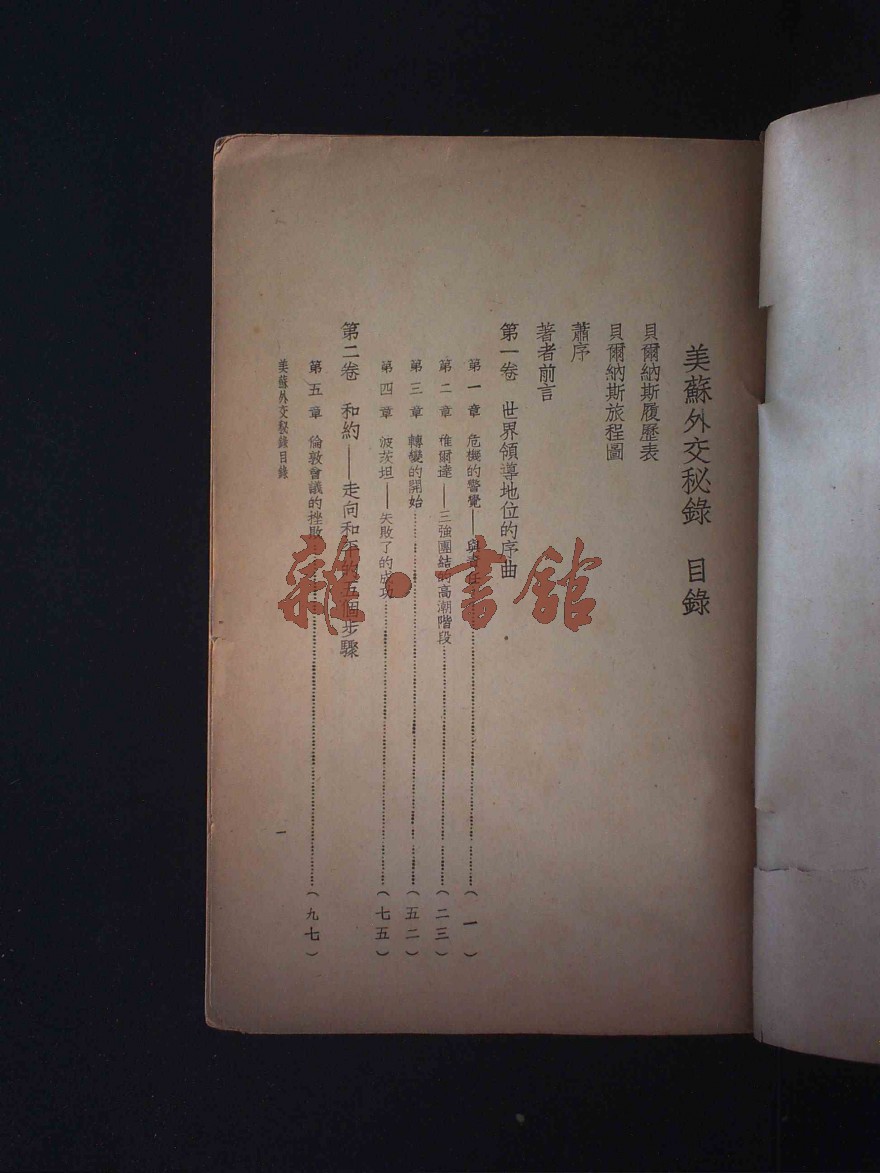 美蘇外交秘錄 目錄
貝爾納斯履歷表
貝爾納斯旅程圖
蕭序
著者前言
第一卷 世界領導地位的序曲
第一章 危機的警覺——與責任……(一)
第二章 雅爾達——三強團結的高潮階段……(二三)
第三章 轉變的開始……(五二)
第四章 波茨坦——失敗了的成功……(七五)
第二卷 和約——走向和平的五個步驟
第五章 倫敦會議的挫敗……(九七)
美蘇外交秘錄目錄
一
雜·書館